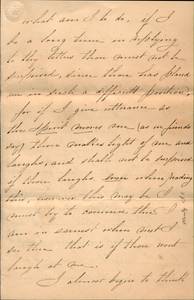 what am I to do. if I
be a long time in replying
to thy letter thou must not be
surprised, since thou has placed
me in such a difficult position,
for if I give utterance as
the spirit moves me (as us friends
say) thou makes light of me and
laughs, and shall not be surprised
if thou laughs even when reading
this, however this may be I
must try to convince thee I
am in earnest when next I
see thee that is if thou wont
laugh at me.
I almost begin to think